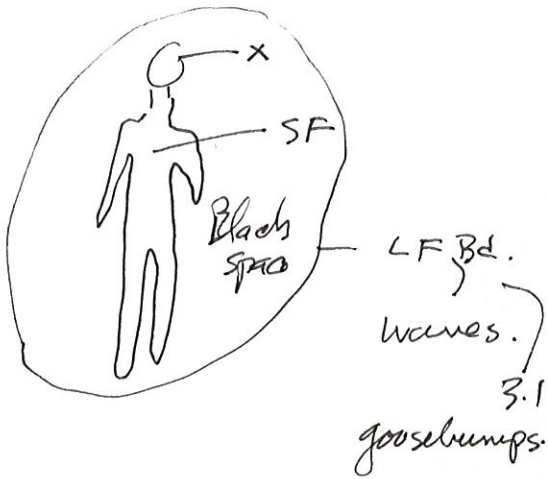 X
SF
Black
space
LF Bd.
waves.
3.1
goosebumps.